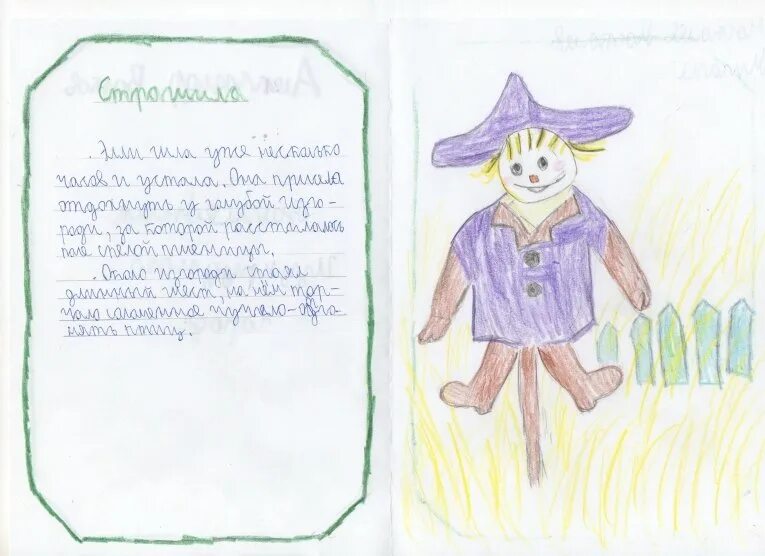 Страшила
Элли шла уже несколько
часов и устала. Она присела
отдохнуть у голубой изго-
роди, за которой расстилалось
поле спелой пшеницы.
Около изгороди стоял
длинный шест, на нём тор-
чало соломенное чучело-
нять птиц.